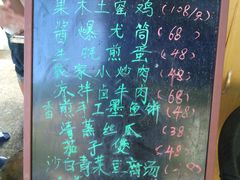 果木土窑鸡(108/只)
酱爆尤筒(68)
生蚝煎蛋(48)
农家小炒肉(48)
凉拌白牛肉(68)
香煎手工墨鱼饼(48)
清蒸丝瓜(38
茄子煲(48
白青菜豆腐汤